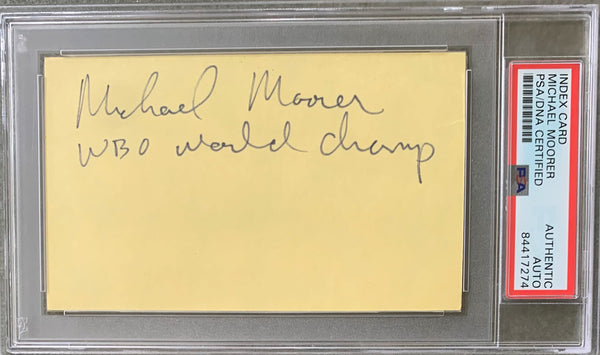 Michael Moorer
WBO world champ
INDEX CARD
MICHAEL MOORER
PSA/DNA CERTIFIED
PSA
AUTHENTIC
AUTO
84417274